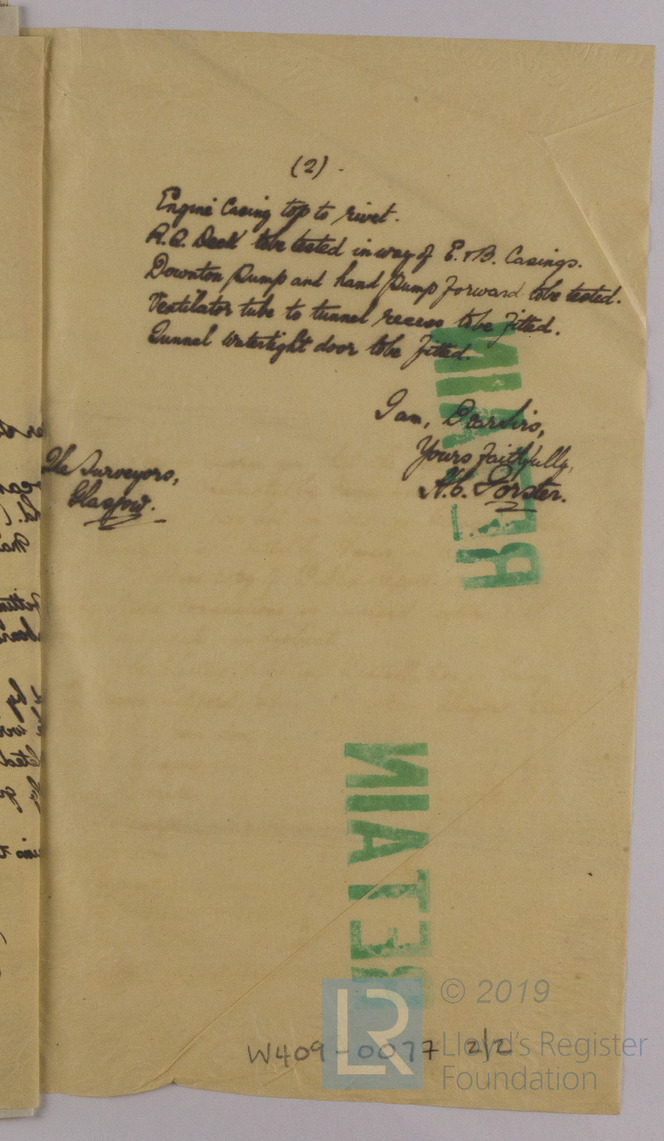 (2).
Engine Casing top to rivet.
R.Q. Deck to be tested in way of E. & B. Casings.
Downton Pump and hand Pump forward to be tested.
Ventilator tube to tunnel recess to be fitted.
Tunnel watertight door to be fitted.
I am, Dear Sirs,
Yours faithfully,
H.C. Forster.
The Surveyors,
Glasgow.
RETAIN
RETAIN
W409-0077 2/2
LR
© 2019
Lloyd's Register
Foundation